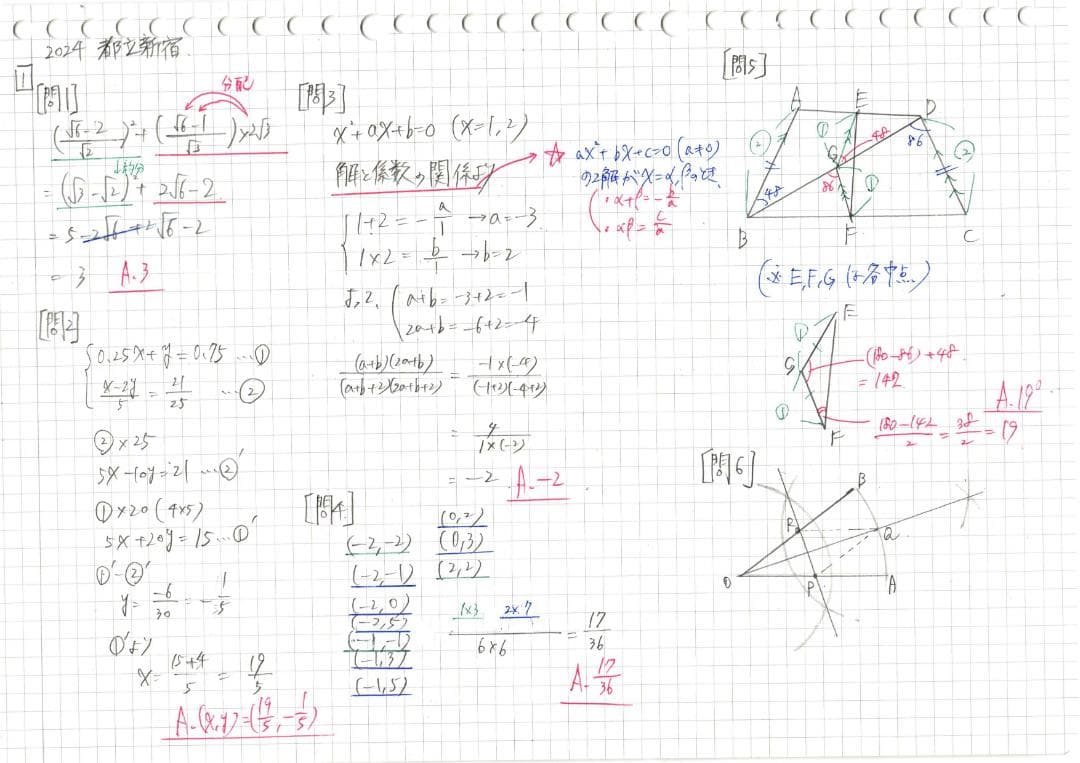 2024 都立新宿
1
[問1]
分配
((√6-2)/√2)² + ((√6-1)/√3)×2√3
↓約分
= (√3-√2)² + 2√6-2
= 5-2√6+2√6-2
= 3 A.3
[問2]
{0.25x+y=0.75 …①
(x-2y)/5 = 21/25 …②
②×25
5x-10y=21 …②'
①×20(4×5)
5x+20y=15 …①'
①'-②'
y= -6/30 = -1/5
①'より
x= (15+4)/5 = 19/5
A.(x,y)=(19/5, -1/5)
[問3]
x²+ax+b=0 (x=1,2)
解と係数の関係より
☆ ax²+bx+c=0 (a≠0)
の2解がx=α,βのとき
・α+β=-b/a
・αβ=c/a
{1+2=-a/1 →a=-3
1×2=b/1 →b=2
よって、(a+b=-3+2=-1
2a+b=-6+2=-4
(a+b)(2a+b)/(a+b+2)(2a+b+2) = -1×(-4)/(-1+2)(-4+2)
= 4/1×(-2)
= -2 A.-2
[問4]
(-2,-2)
(-2,-1)
(-2,0)
(-2,5)
(-1,-1)
(-1,3)
(-1,5)
(0,2)
(0,3)
(2,2)
1×3 2×7
6×6
= 17/36
A.17/36
[問5]
A E D
② ① 48 86 ②
G
48 86 ①
B F C
(※E,F,Gは各中点)
E
①
G (180-86)+48
=142
①
F (180-142)/2 = 38/2 = 19
A.19°
[問6]
B
R Q
O P A